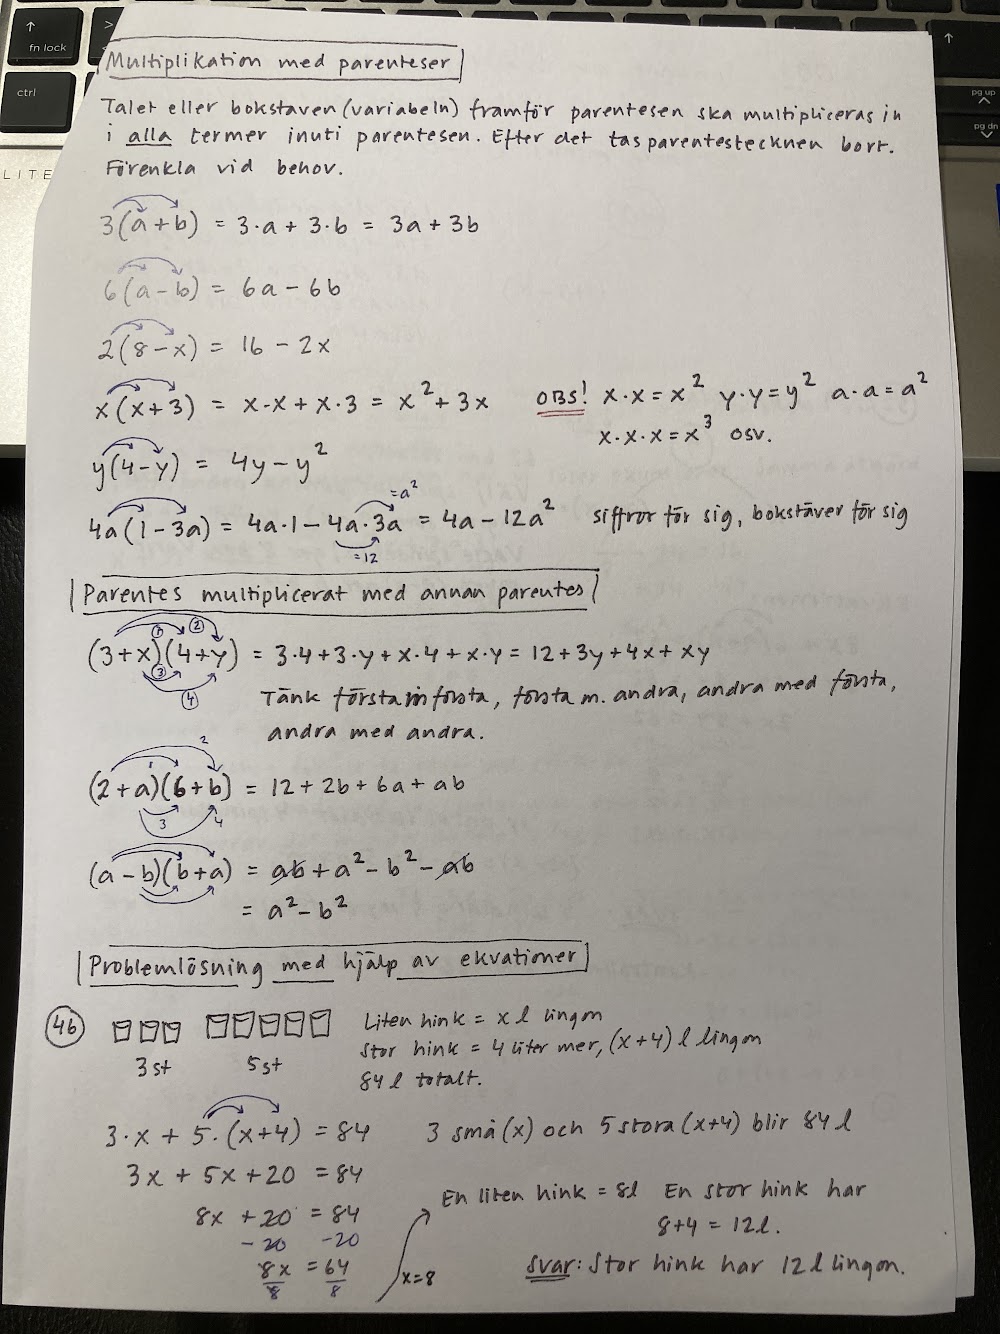 fn lock
ctrl
pg up
pg dn
LITE
Multiplikation med parenteser
Talet eller bokstaven (variabeln) framför parentesen ska multipliceras in
i alla termer inuti parentesen. Efter det tas parentestecknen bort.
Förenkla vid behov.
3(a+b) = 3·a + 3·b = 3a + 3b
6(a-b) = 6a - 6b
2(8-x) = 16 - 2x
x(x+3) = x·x + x·3 = x² + 3x OBS! x·x = x² y·y = y² a·a = a²
x·x·x = x³ osv.
y(4-y) = 4y - y²
=a²
4a(1-3a) = 4a·1 - 4a·3a = 4a - 12a² siffror för sig, bokstäver för sig
=12
Parentes multiplicerat med annan parentes
① ②
(3+x)(4+y) = 3·4 + 3·y + x·4 + x·y = 12 + 3y + 4x + xy
③
④
Tänk första m första, första m. andra, andra med första,
andra med andra.
1 2
(2+a)(6+b) = 12 + 2b + 6a + ab
3 4
(a-b)(b+a) = ab + a² - b² - ab
= a² - b²
Problemlösning med hjälp av ekvationer
46
Liten hink = x l lingon
Stor hink = 4 liter mer, (x+4) l lingon
3 st 5 st
84 l totalt.
3·x + 5·(x+4) = 84 3 små (x) och 5 stora (x+4) blir 84 l
3x + 5x + 20 = 84
En liten hink = 8l En stor hink har
8x + 20 = 84
8+4 = 12l.
-20 -20
8x = 64
8 8
x=8
Svar: Stor hink har 12 l lingon.